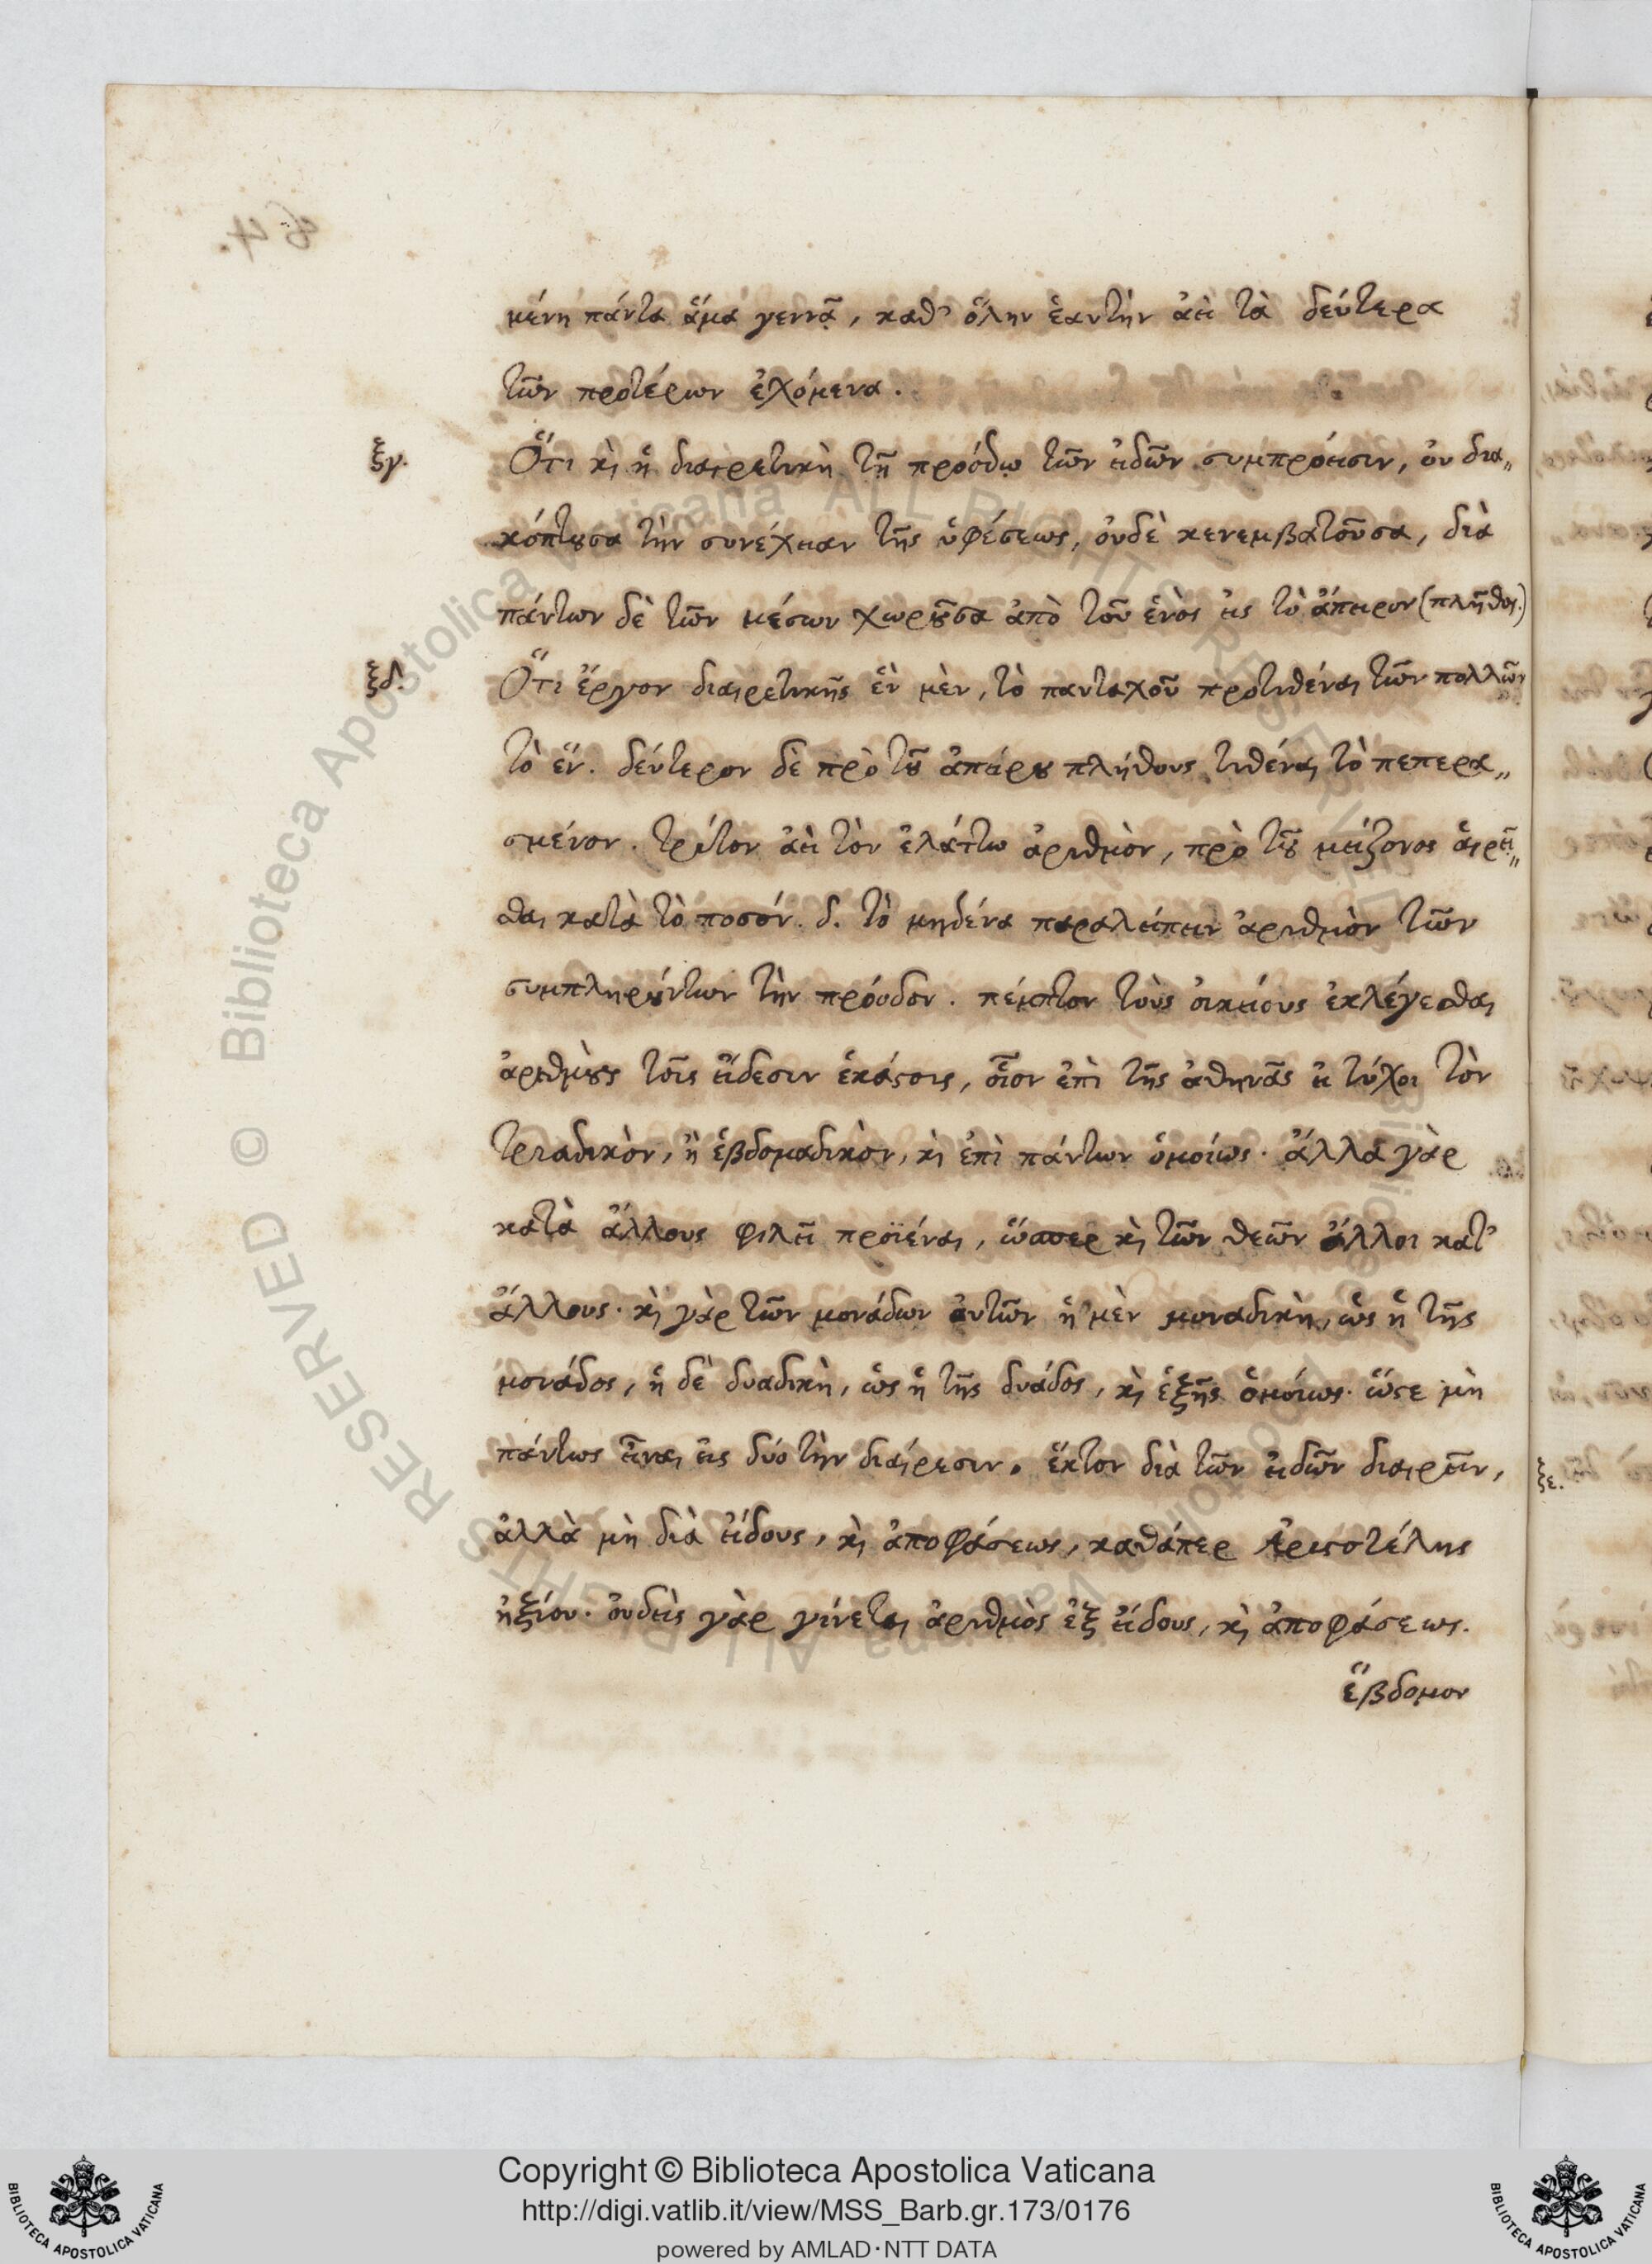 μένη πάντα ἅμα γεννᾷ, καθ' ὅλην ἑαυτὴν ἀεὶ τὰ δεύτερα
τῶν προτέρων ἐχόμενα.
ξγ. Ὅτι κὶ ἡ διαιρετικὴ τῇ προόδῳ τῶν εἰδῶν συμπρόεισιν, οὐ δια„
κόπτουσα τὴν συνέχειαν τῆς ὑφέσεως, οὐδὲ κενεμβατοῦσα, διὰ
πάντων δὲ τῶν μέσων χωροῦσα ἀπὸ τοῦ ἑνὸς εἰς τὸ ἄπειρον (πλῆθος.)
ξδ. Ὅτι ἔργον διαιρετικῆς ἓν μὲν, τὸ πανταχοῦ προτιθέναι τῶν πολλῶν
τὸ ἕν. δεύτερον δὲ πρὸ τοῦ ἀπείρου πλήθους τιθέναι τὸ πεπερα„
σμένον. τρίτον ἀεὶ τὸν ἐλάττω ἀριθμὸν, πρὸ τοῦ μείζονος αἱρεῖ„
σθαι κατὰ τὸ ποσόν. δ. τὸ μηδένα παραλείπειν ἀριθμὸν τῶν
συμπληρούντων τὴν πρόοδον. πέμπτον τοὺς οἰκείους ἐκλέγεσθαι
ἀριθμοὺς τοῖς εἴδεσιν ἑκάστοις, οἷον ἐπὶ τῆς ἀθηνᾶς εἰ τύχοι τὸν
τριαδικὸν, ἢ ἑβδομαδικὸν, κὶ ἐπὶ πάντων ὁμοίως. ἄλλα γὰρ
κατὰ ἄλλους φιλεῖ προϊέναι, ὥσπερ κὶ τῶν θεῶν ἄλλοι κατ'
ἄλλους. κὶ γὰρ τῶν μονάδων αὐτῶν ἡ μὲν μοναδικὴ, ὡς ἡ τῆς
μονάδος, ἡ δὲ δυαδικὴ, ὡς ἡ τῆς δυάδος, κὶ ἑξῆς ὁμοίως. ὥστε μὴ
πάντως εἶναι εἰς δύο τὴν διαίρεσιν. ἕκτον διὰ τῶν εἰδῶν διαιρεῖν,
ἀλλὰ μὴ διὰ εἴδους, κὶ ἀποφάσεως, καθάπερ Ἀριστοτέλης
ἠξίου. οὐδεὶς γὰρ γίνεται ἀριθμὸς ἐξ εἴδους, κὶ ἀποφάσεως.
ἕβδομον
ξε.
© Biblioteca Apostolica Vaticana ALL RIGHTS RESERVED
Copyright © Biblioteca Apostolica Vaticana
http://digi.vatlib.it/view/MSS_Barb.gr.173/0176
powered by AMLAD·NTT DATA
BIBLIOTECA APOSTOLICA VATICANA
BIBLIOTECA APOSTOLICA VATICANA